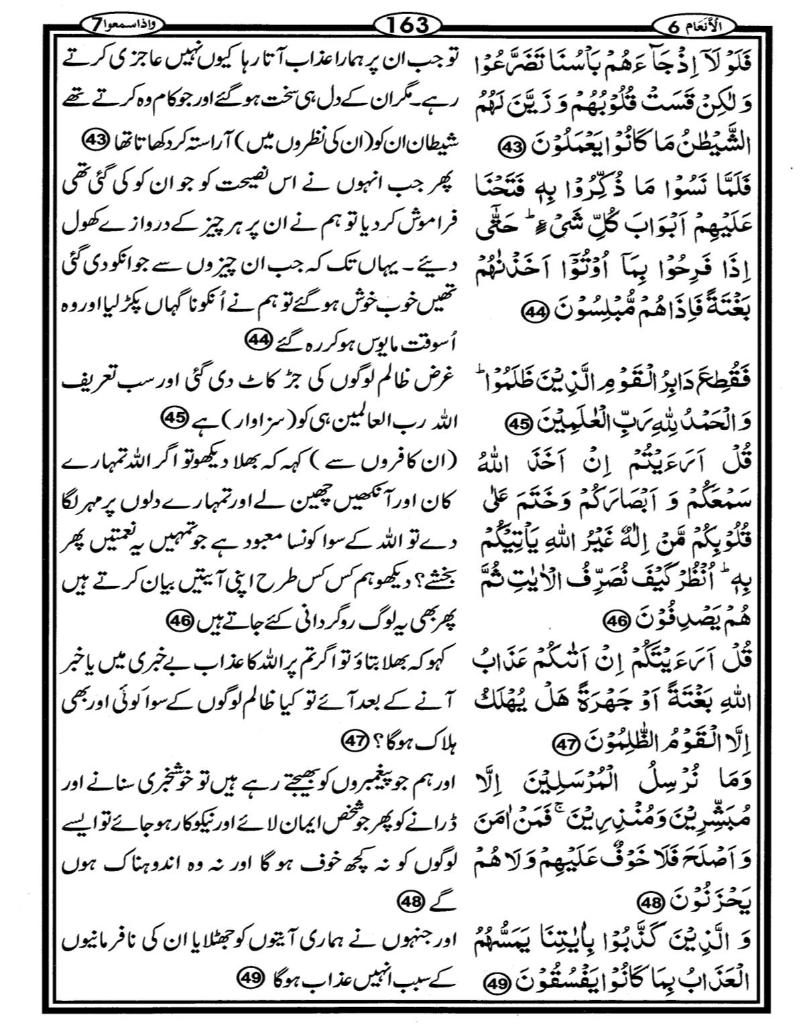 الأنعام 6
163
واذاسمعوا 7
فَلَوْ لَاۤ اِذْ جَآءَهُمْ بَاْسُنَا تَضَرَّعُوْا
وَلٰكِنْ قَسَتْ قُلُوْبُهُمْ وَ زَيَّنَ لَهُمُ
الشَّيْطٰنُ مَا كَانُوْا يَعْمَلُوْنَ 43
فَلَمَّا نَسُوْا مَا ذُكِّرُوْا بِهٖ فَتَحْنَا
عَلَيْهِمْ اَبْوَابَ كُلِّ شَىْءٍ ؕ حَتّٰۤى
اِذَا فَرِحُوْا بِمَاۤ اُوْتُوْۤا اَخَذْنٰهُمْ
بَغْتَةً فَاِذَا هُمْ مُّبْلِسُوْنَ 44
فَقُطِعَ دَابِرُ الْقَوْمِ الَّذِيْنَ ظَلَمُوْا ؕ
وَالْحَمْدُ لِلّٰهِ رَبِّ الْعٰلَمِيْنَ 45
قُلْ اَرَءَيْتُمْ اِنْ اَخَذَ اللّٰهُ
سَمْعَكُمْ وَ اَبْصَارَكُمْ وَخَتَمَ عَلٰى
قُلُوْبِكُمْ مَّنْ اِلٰهٌ غَيْرُ اللّٰهِ يَاْتِيْكُمْ
بِهٖ ؕ اُنْظُرْ كَيْفَ نُصَرِّفُ الْاٰيٰتِ ثُمَّ
هُمْ يَصْدِفُوْنَ 46
قُلْ اَرَءَيْتَكُمْ اِنْ اَتٰٮكُمْ عَذَابُ
اللّٰهِ بَغْتَةً اَوْ جَهْرَةً هَلْ يُهْلَكُ
اِلَّا الْقَوْمُ الظّٰلِمُوْنَ 47
وَمَا نُرْسِلُ الْمُرْسَلِيْنَ اِلَّا
مُبَشِّرِيْنَ وَمُنْذِرِيْنَ ۚ فَمَنْ اٰمَنَ
وَاَصْلَحَ فَلَا خَوْفٌ عَلَيْهِمْ وَلَا هُمْ
يَحْزَنُوْنَ 48
وَ الَّذِيْنَ كَذَّبُوْا بِاٰيٰتِنَا يَمَسُّهُمُ
الْعَذَابُ بِمَا كَانُوْا يَفْسُقُوْنَ 49
تو جب ان پر ہمارا عذاب آتا رہا کیوں نہیں عاجزی کرتے
رہے۔ مگر ان کے دل ہی سخت ہو گئے اور جو کام وہ کرتے تھے
شیطان ان کو (ان کی نظروں میں) آراستہ کر دکھاتا تھا 43
پھر جب انہوں نے اس نصیحت کو جو ان کو کی گئی تھی
فراموش کر دیا تو ہم نے ان پر ہر چیز کے دروازے کھول
دیئے۔ یہاں تک کہ جب ان چیزوں سے جو انکو دی گئی
تھیں خوب خوش ہو گئے تو ہم نے اُنکو ناگہاں پکڑ لیا اور وہ
اُسوقت مایوس ہو کر رہ گئے 44
غرض ظالم لوگوں کی جڑ کاٹ دی گئی اور سب تعریف
اللہ رب العالمین ہی کو (سزاوار) ہے 45
(ان کافروں سے) کہہ کہ بھلا دیکھو تو اگر اللہ تمہارے
کان اور آنکھیں چھین لے اور تمہارے دلوں پر مہر لگا
دے تو اللہ کے سوا کونسا معبود ہے جو تمہیں یہ نعمتیں پھر
بخشے؟ دیکھو ہم کس کس طرح اپنی آیتیں بیان کرتے ہیں
پھر بھی یہ لوگ روگردانی کئے جاتے ہیں 46
کہو کہ بھلا بتاؤ تو اگر تم پر اللہ کا عذاب بےخبری میں یا خبر
آنے کے بعد آئے تو کیا ظالم لوگوں کے سوا کوئی اور بھی
ہلاک ہوگا؟ 47
اور ہم جو پیغمبروں کو بھیجتے رہے ہیں تو خوشخبری سنانے اور
ڈرانے کو پھر جو شخص ایمان لائے اور نیکوکار ہو جائے تو ایسے
لوگوں کو نہ کچھ خوف ہو گا اور نہ وہ اندوہناک ہوں
گے 48
اور جنہوں نے ہماری آیتوں کو جھٹلایا ان کی نافرمانیوں
کے سبب انہیں عذاب ہوگا 49